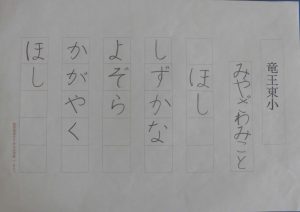 竜王東小
みやざわみこと
ほし
しずかな
よぞら
かがやく
ほし